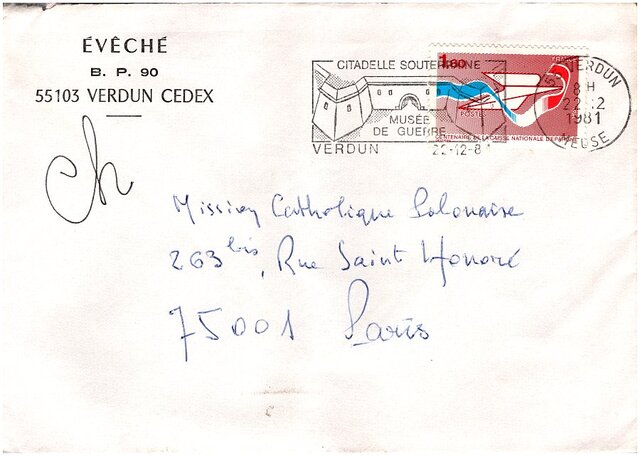 ÉVÊCHÉ
B. P. 90
55103 VERDUN CEDEX
Ch
CITADELLE SOUTERRAINE
MUSÉE
DE GUERRE
VERDUN
22-12-81
1,60
POSTE
CENTENAIRE DE LA CAISSE NATIONALE D'EPARGNE
55 VERDUN
8 H
22-12
1981
MEUSE
Mission Catholique Polonaise
263 bis, Rue Saint Honoré
75001 Paris